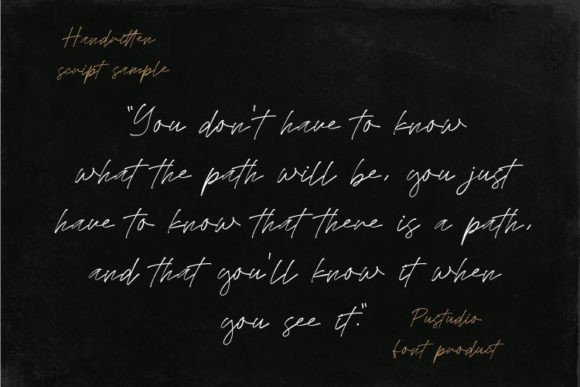 Handritten
script sample
"You don't have to know
what the path will be, you just
have to know that there is a path,
and that you'll know it when
you see it."
Pustudio
font product